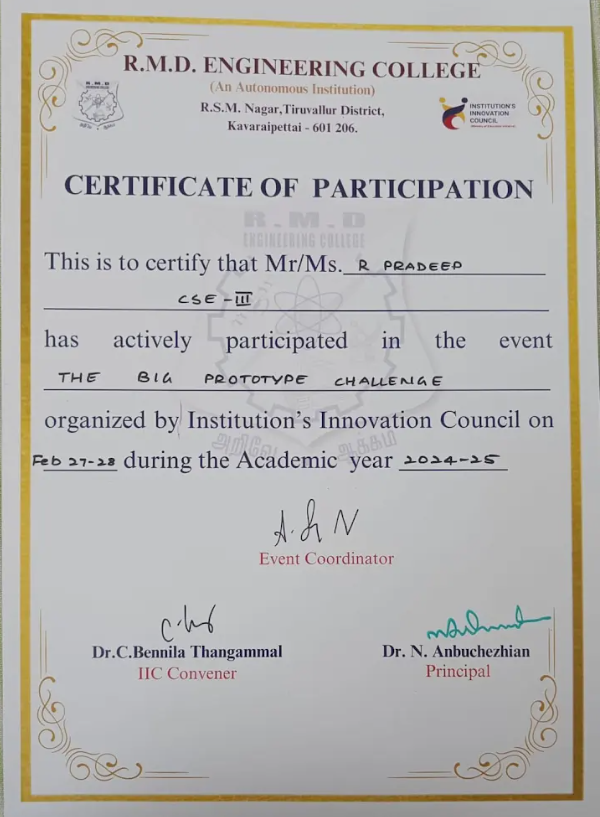 R.M.D. ENGINEERING COLLEGE
(An Autonomous Institution)
R.S.M. Nagar,Tiruvallur District,
Kavaraipettai - 601 206.
R.M.D
INSTITUTION'S
INNOVATION
COUNCIL
CERTIFICATE OF PARTICIPATION
R.M.D
ENGINEERING COLLEGE
This is to certify that Mr/Ms. R PRADEEP
CSE - III
has actively participated in the event
THE BIG PROTOTYPE CHALLENGE
organized by Institution's Innovation Council on
அறிவே ஆக்கம்
Feb 27-28 during the Academic year 2024-25
Event Coordinator
Dr.C.Bennila Thangammal
IIC Convener
Dr. N. Anbuchezhian
Principal